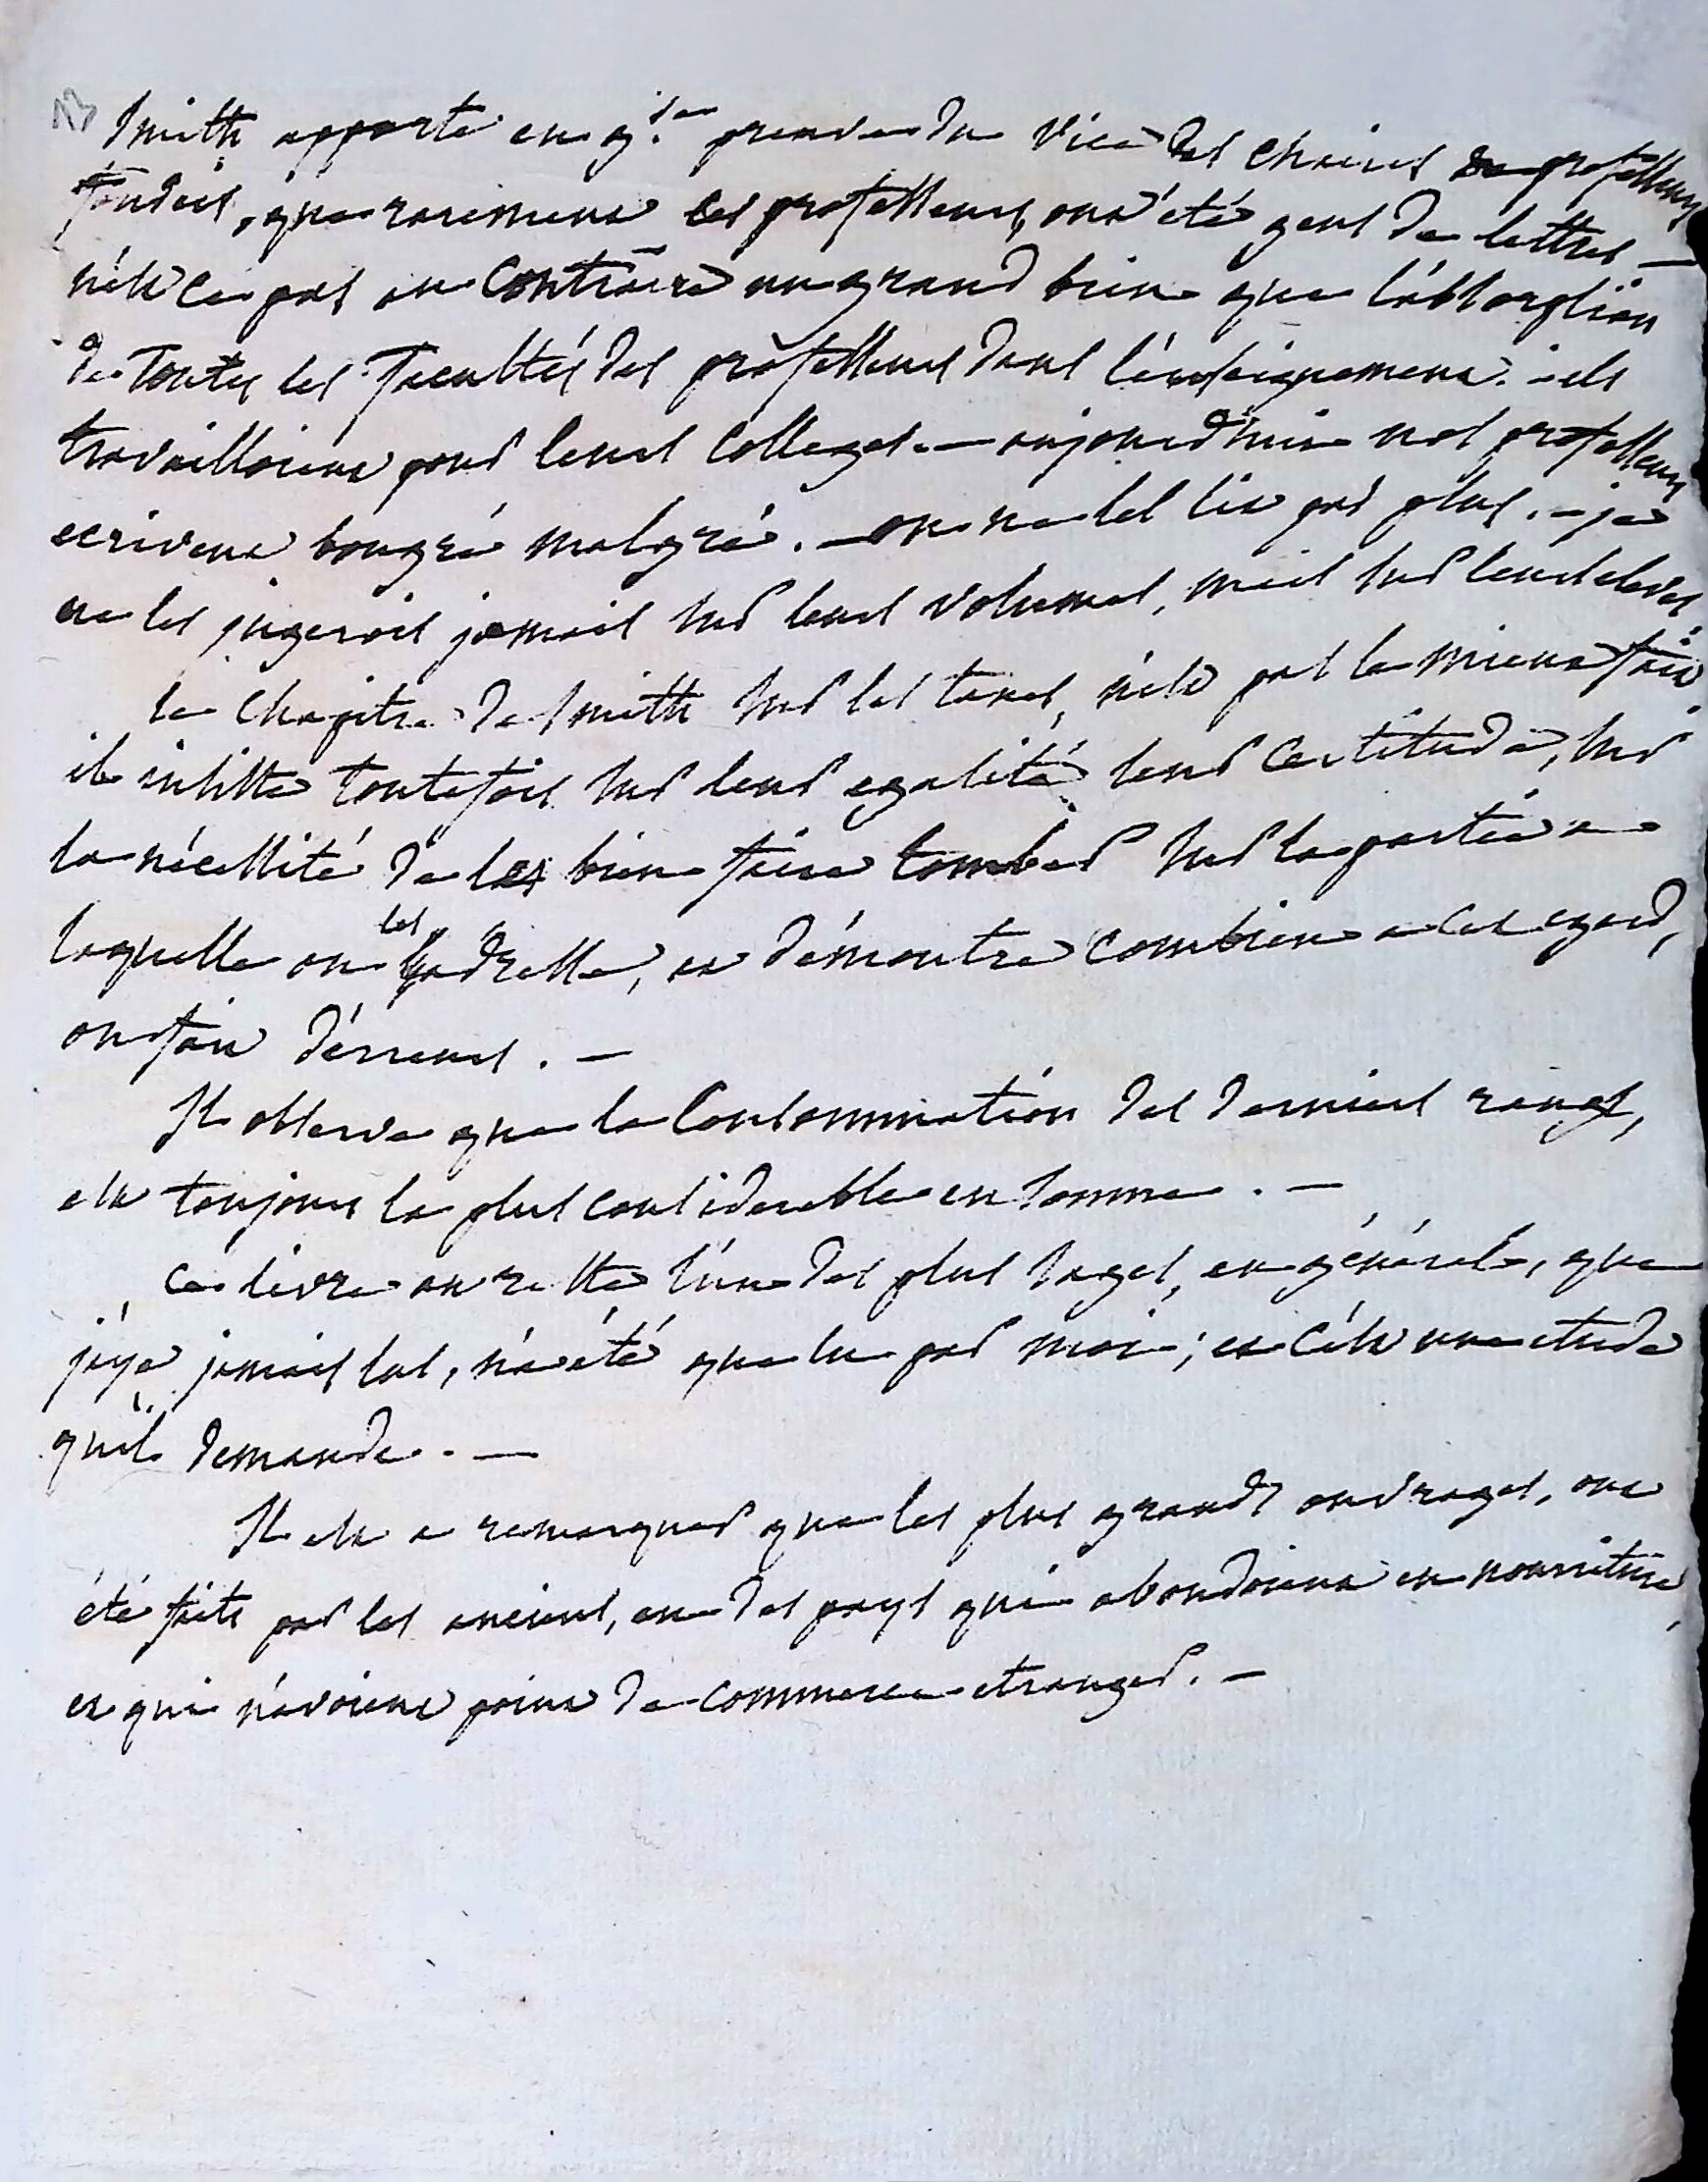 13
Smith apporte en g.de preuve du vice des chaires de professeurs
fondées, que rarement les professeurs, ont été gens de lettres —
n'est ce pas au contraire un grand bien que l'absorption
de toutes les facultés des professeurs dans l'enseignement. - ils
travailloient pour leurs colleges. — aujourd'hui nos professeurs
ecrivent bongré malgré. — on ne les lit pas plus. - je
ne les jugerois jamais sur leurs volumes, mais sur leurs eleves.
le chapitre de Smith sur les taxes, n'est pas le mieux fait
il insiste toutefois sur leur egalité leur certitude, sur
la nécessité de les bien faire tomber sur la partie a
laquelle on les adresse, et démontre combien a cet egard,
on fait d'érreurs. —
Il observe que la consommation des derniers rangs,
est toujours la plus considerable en somme. —
ce livre au reste l'un des plus sages, en général, que
j'aye jamais lus, n'a été que lu par moi; et c'est une etude
qu'il demande. —
Il est a remarquer que les plus grands ouvrages, ont
été faits par les anciens, en des pays qui abondoient en nourriture,
et qui n'avoient point de commerce etranger. —